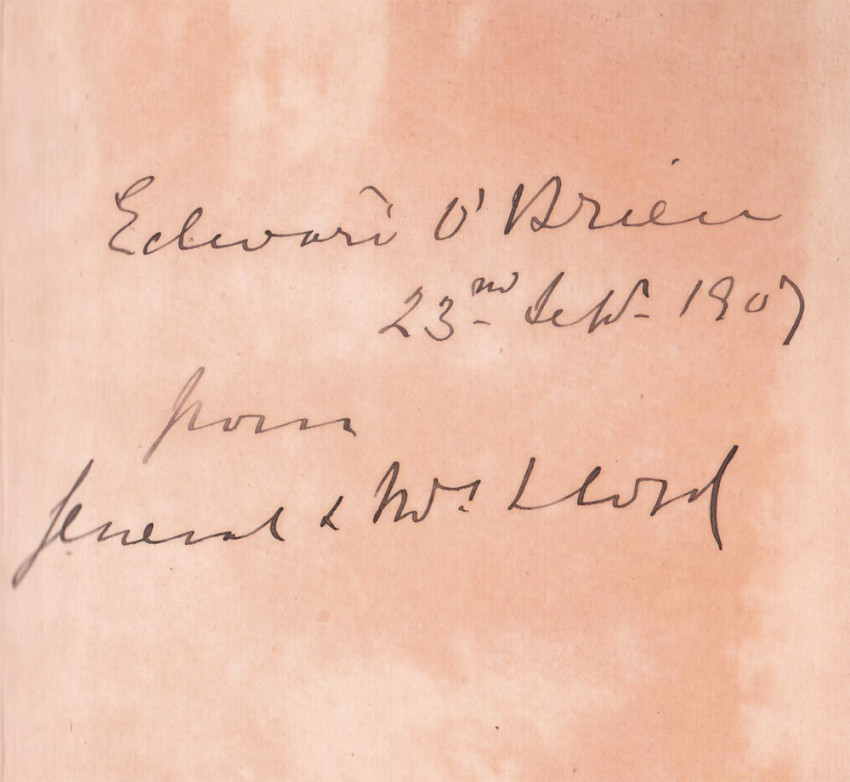 Edward O'Brien
23nd Sept. 1907
from
General & Mrs Lloyd